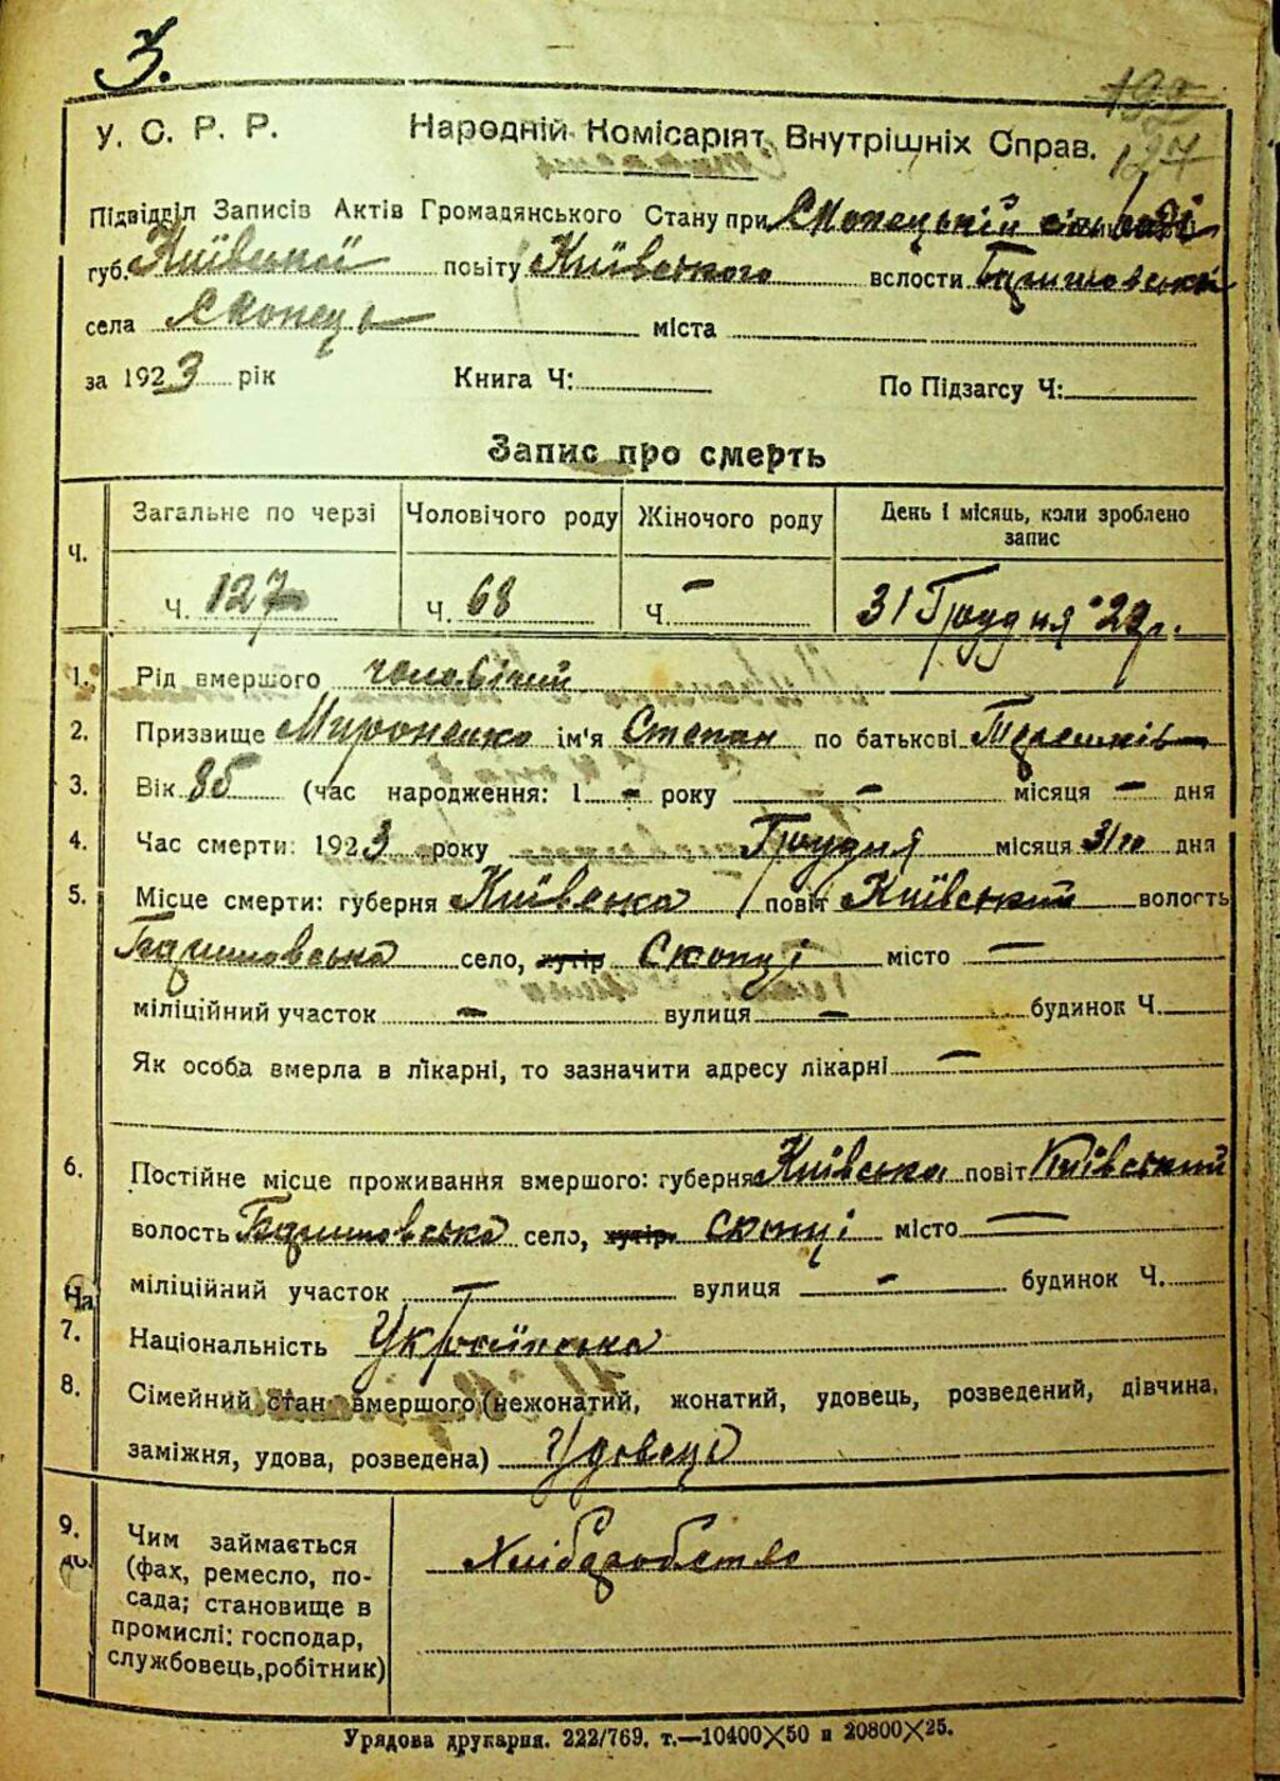 З.
192
127
У. С. Р. Р. Народній Комісаріят Внутрішніх Справ.
Підвідділ Записів Актів Громадянського Стану при Скопецькій сільраді
губ. Київської повіту Київського волости Баришовської
села Скопець міста
за 1923 рік Книга Ч: По Підзагсу Ч:
Запис про смерть
Ч. Загальне по черзі Чоловічого роду Жіночого роду День і місяць, коли зроблено запис
Ч. 127 Ч. 68 Ч. – 31 Грудня 23 р.
1. Рід вмершого чоловічий
2. Призвище Мироненко ім'я Степан по батькові
3. Вік 85 (час народження: 1 – року – місяця – дня
4. Час смерти: 1923 року Грудня місяця 31го дня
5. Місце смерти: губерня Київська повіт Київський волость
Баришовська село, хутір Скопці місто –
міліційний участок – вулиця – будинок Ч.
Як особа вмерла в лікарні, то зазначити адресу лікарні –
6. Постійне місце проживання вмершого: губерня Київська повіт Київський
волость Баришовська село, хутір Скопці місто –
міліційний участок – вулиця – будинок Ч.
7. Національність Українська
8. Сімейний стан вмершого (нежонатий, жонатий, удовець, розведений, дівчина,
заміжня, удова, розведена) Удовець
9. Чим займається Хліборобство
(фах, ремесло, по-
сада; становище в
промислі: господар,
службовець, робітник)
Урядова друкарня. 222/769. т.—10400×50 и 20800×25.